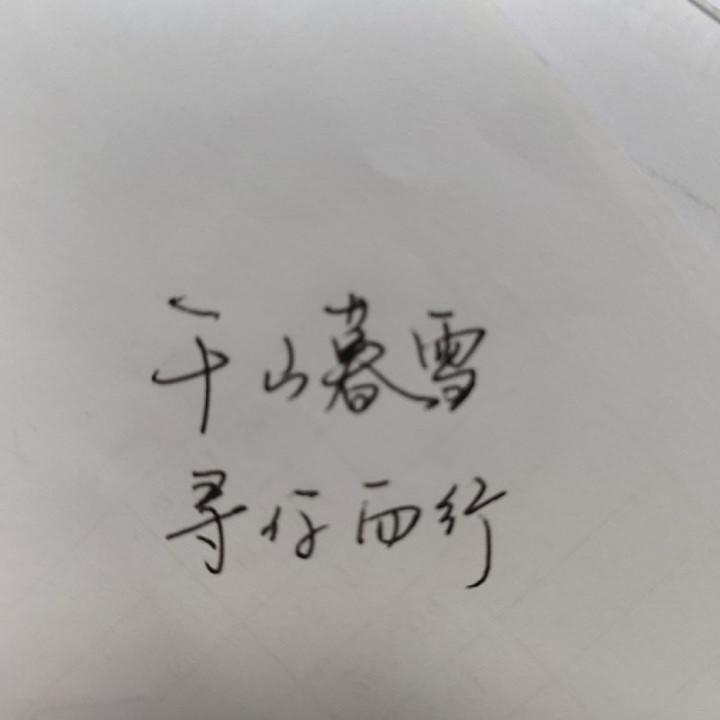 千山暮雪
寻仔西行